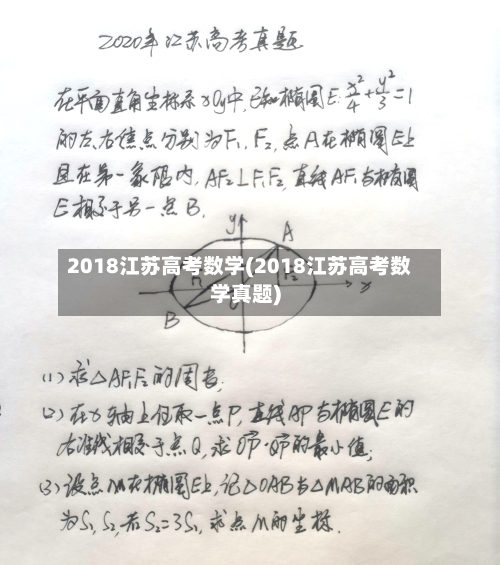 2020年江苏高考真题
在平面直角坐标系xOy中,已知椭圆E:x²/4+y²/3=1
的左、右焦点分别为F₁、F₂,点A在椭圆E上
且在第一象限内,AF₂⊥F₁F₂,直线AF₁与椭圆
E相交于另一点B.
y
A
2018江苏高考数学(2018江苏高考数
学真题)
F₂
x
B
(1)求△AF₁F₂的周长;
(2)在x轴上任取一点P,直线AP与椭圆E的
右准线相交于点Q,求OP·QP的最小值;
(3)设点M在椭圆E上,记△OAB与△MAB的面积
为S₁,S₂,若S₂=3S₁,求点M的坐标.